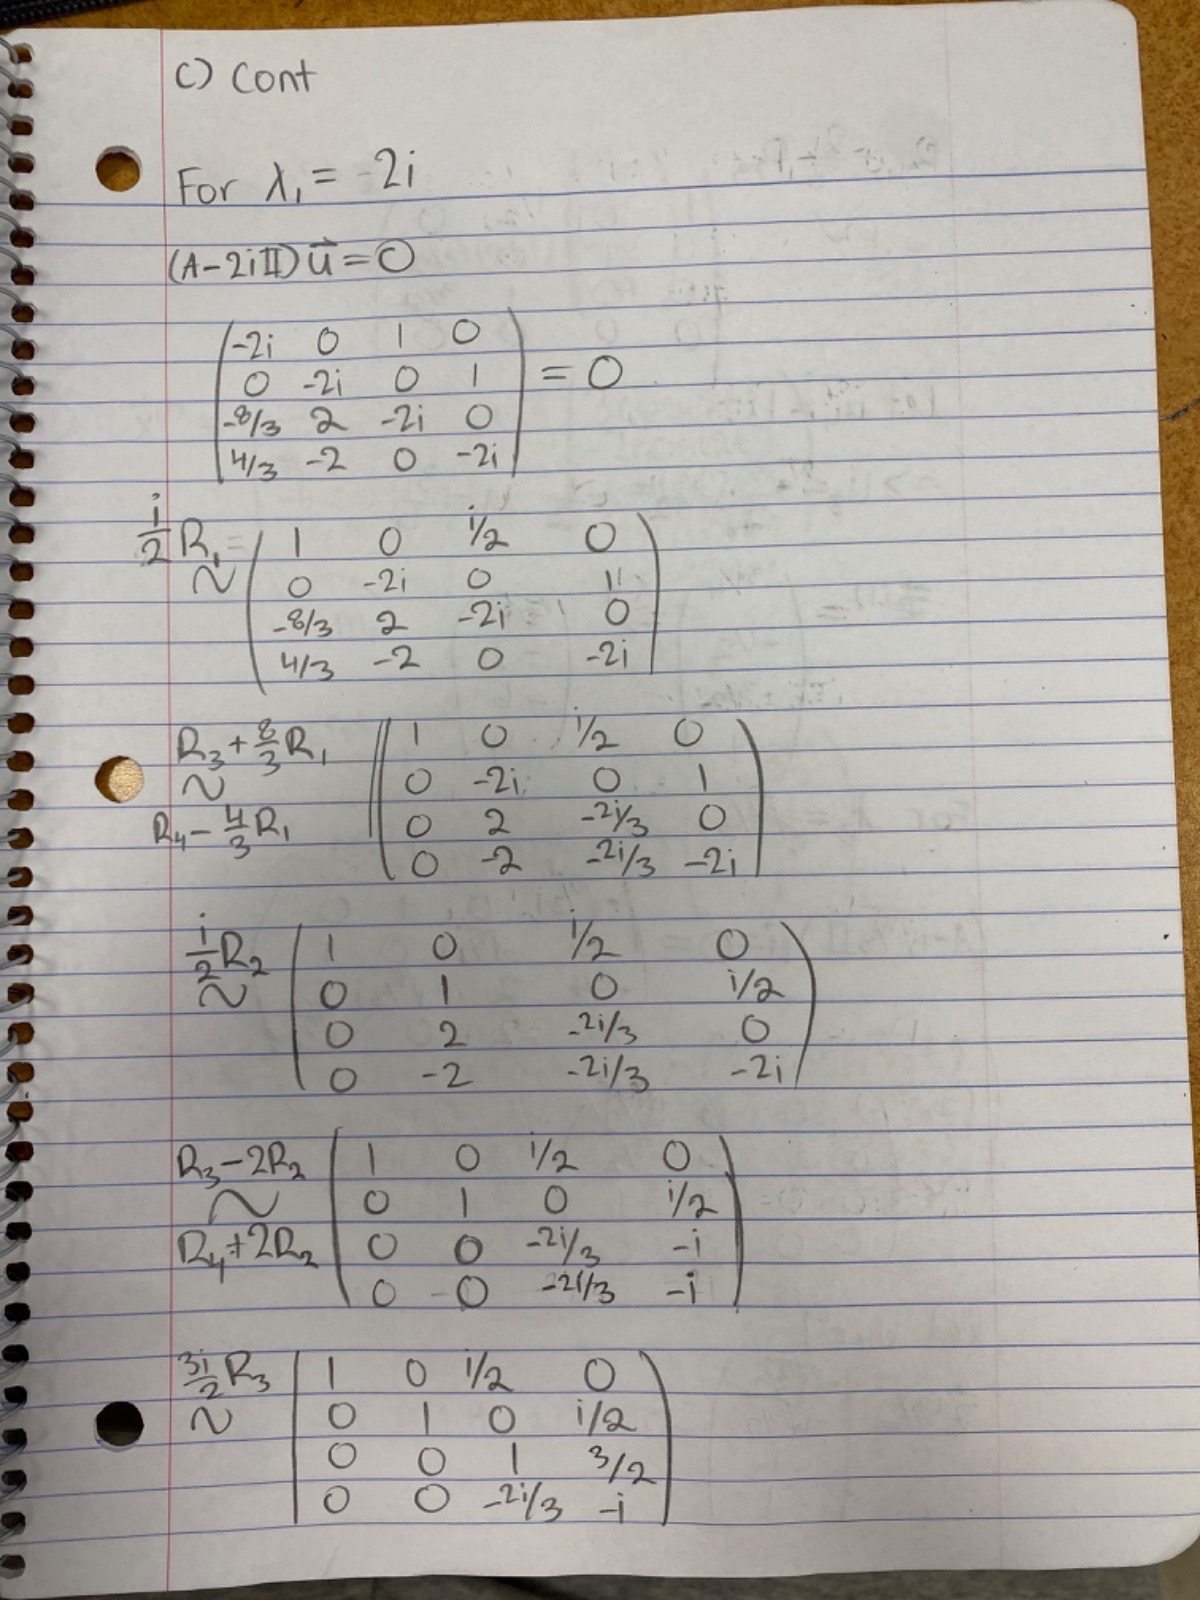 c) Cont
For λ₁ = 2i
(A-2i𝕀)u⃗ = 0
-2i 0 1 0
0 -2i 0 1 = 0
-8/3 2 -2i 0
4/3 -2 0 -2i
i/2 R₁ ~ 1 0 i/2 0
0 -2i 0 1
-8/3 2 -2i 0
4/3 -2 0 -2i
R₃ + 8/3 R₁ 1 0 i/2 0
~ 0 -2i 0 1
R₄ - 4/3 R₁ 0 2 -2i/3 0
0 -2 -2i/3 -2i
i/2 R₂ 1 0 i/2 0
~ 0 1 0 i/2
0 2 -2i/3 0
0 -2 -2i/3 -2i
R₃ - 2R₂ 1 0 i/2 0
~ 0 1 0 i/2
R₄ + 2R₂ 0 0 -2i/3 -i
0 0 -2i/3 -i
3i/2 R₃ 1 0 i/2 0
~ 0 1 0 i/2
0 0 1 3/2
0 0 -2i/3 -i